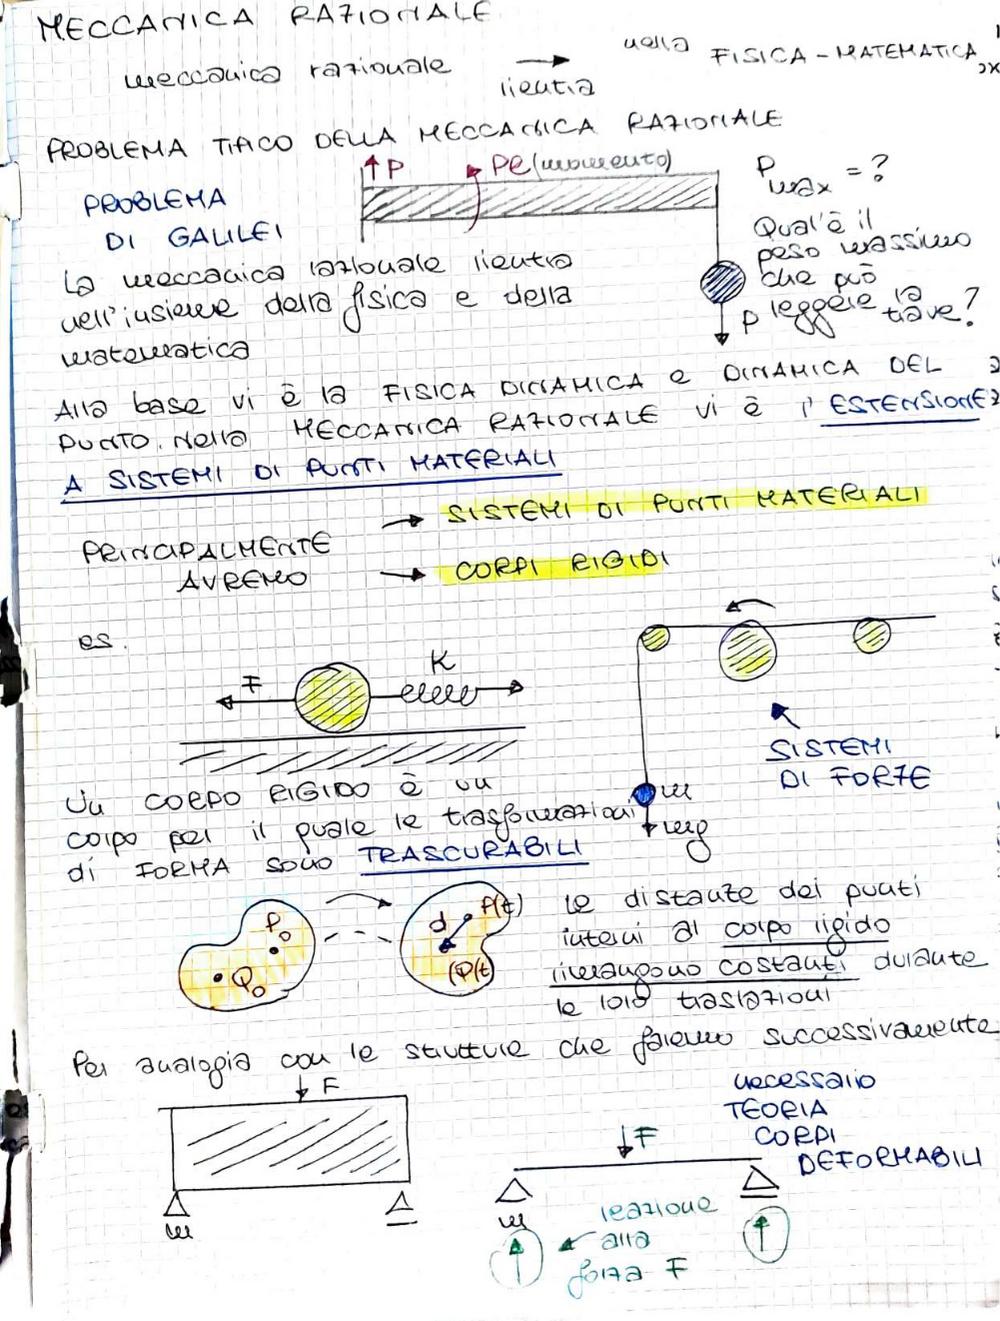 MECCANICA RAZIONALE
meccanica razionale → rientra nella FISICA-MATEMATICA
PROBLEMA TIPICO DELLA MECCANICA RAZIONALE
PROBLEMA
DI GALILEI
P
Pl (momento)
P
Pmax = ?
Qual'è il
peso massimo
che può
reggere la
trave?
La meccanica razionale rientra
nell'insieme della fisica e della
matematica
Alla base vi è la FISICA DINAMICA e DINAMICA DEL
PUNTO. Nella MECCANICA RAZIONALE vi è l'ESTENSIONE
A SISTEMI DI PUNTI MATERIALI
PRINCIPALMENTE
AVREMO
→ SISTEMI DI PUNTI MATERIALI
→ CORPI RIGIDI
es.
F
K
m
mg
SISTEMI
DI FORZE
Un CORPO RIGIDO è un
corpo per il quale le trasformazioni
di FORMA sono TRASCURABILI
P0
Q0
d
P(t)
Q(t)
le distanze dei punti
interni al corpo rigido
rimangono costanti durante
le loro traslazioni
Per analogia con le strutture che faremo successivamente
F
F
necessario
TEORIA
CORPI
DEFORMABILI
reazione
alla
forza F